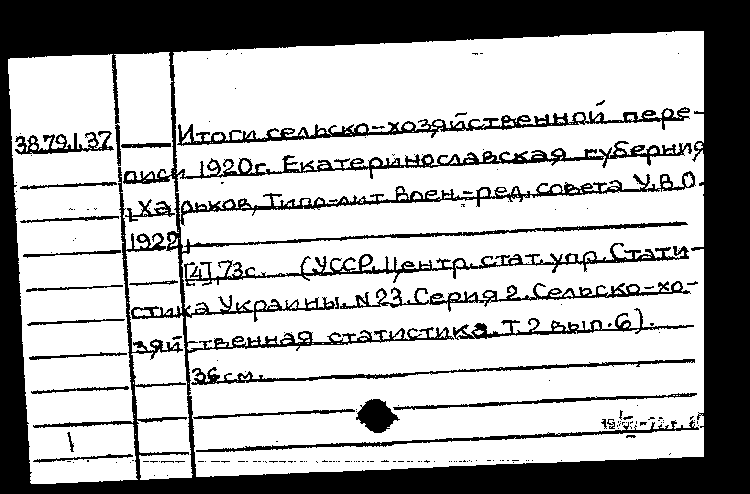 38.79.1.37 Итоги сельско-хозяйственной пере-
писи 1920г. Екатеринославская губерния
, Харьков, Типо-лит. Воен.-ред. совета У.В.О.
1922,
[4], 73с. (УССР. Центр. стат. упр. Стати-
стика Украины. N 23. Серия 2. Сельско-хо-
зяйственная статистика. Т. 2 вып. 6).
36 см.
1